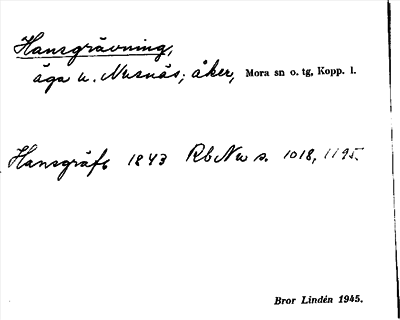 Hansgrävning,
äga u. Nusnäs; åker, Mora sn o. tg, Kopp. l.
Hansgräft 1843 Rb Nu s. 1018, 1195.
Bror Lindén 1945.